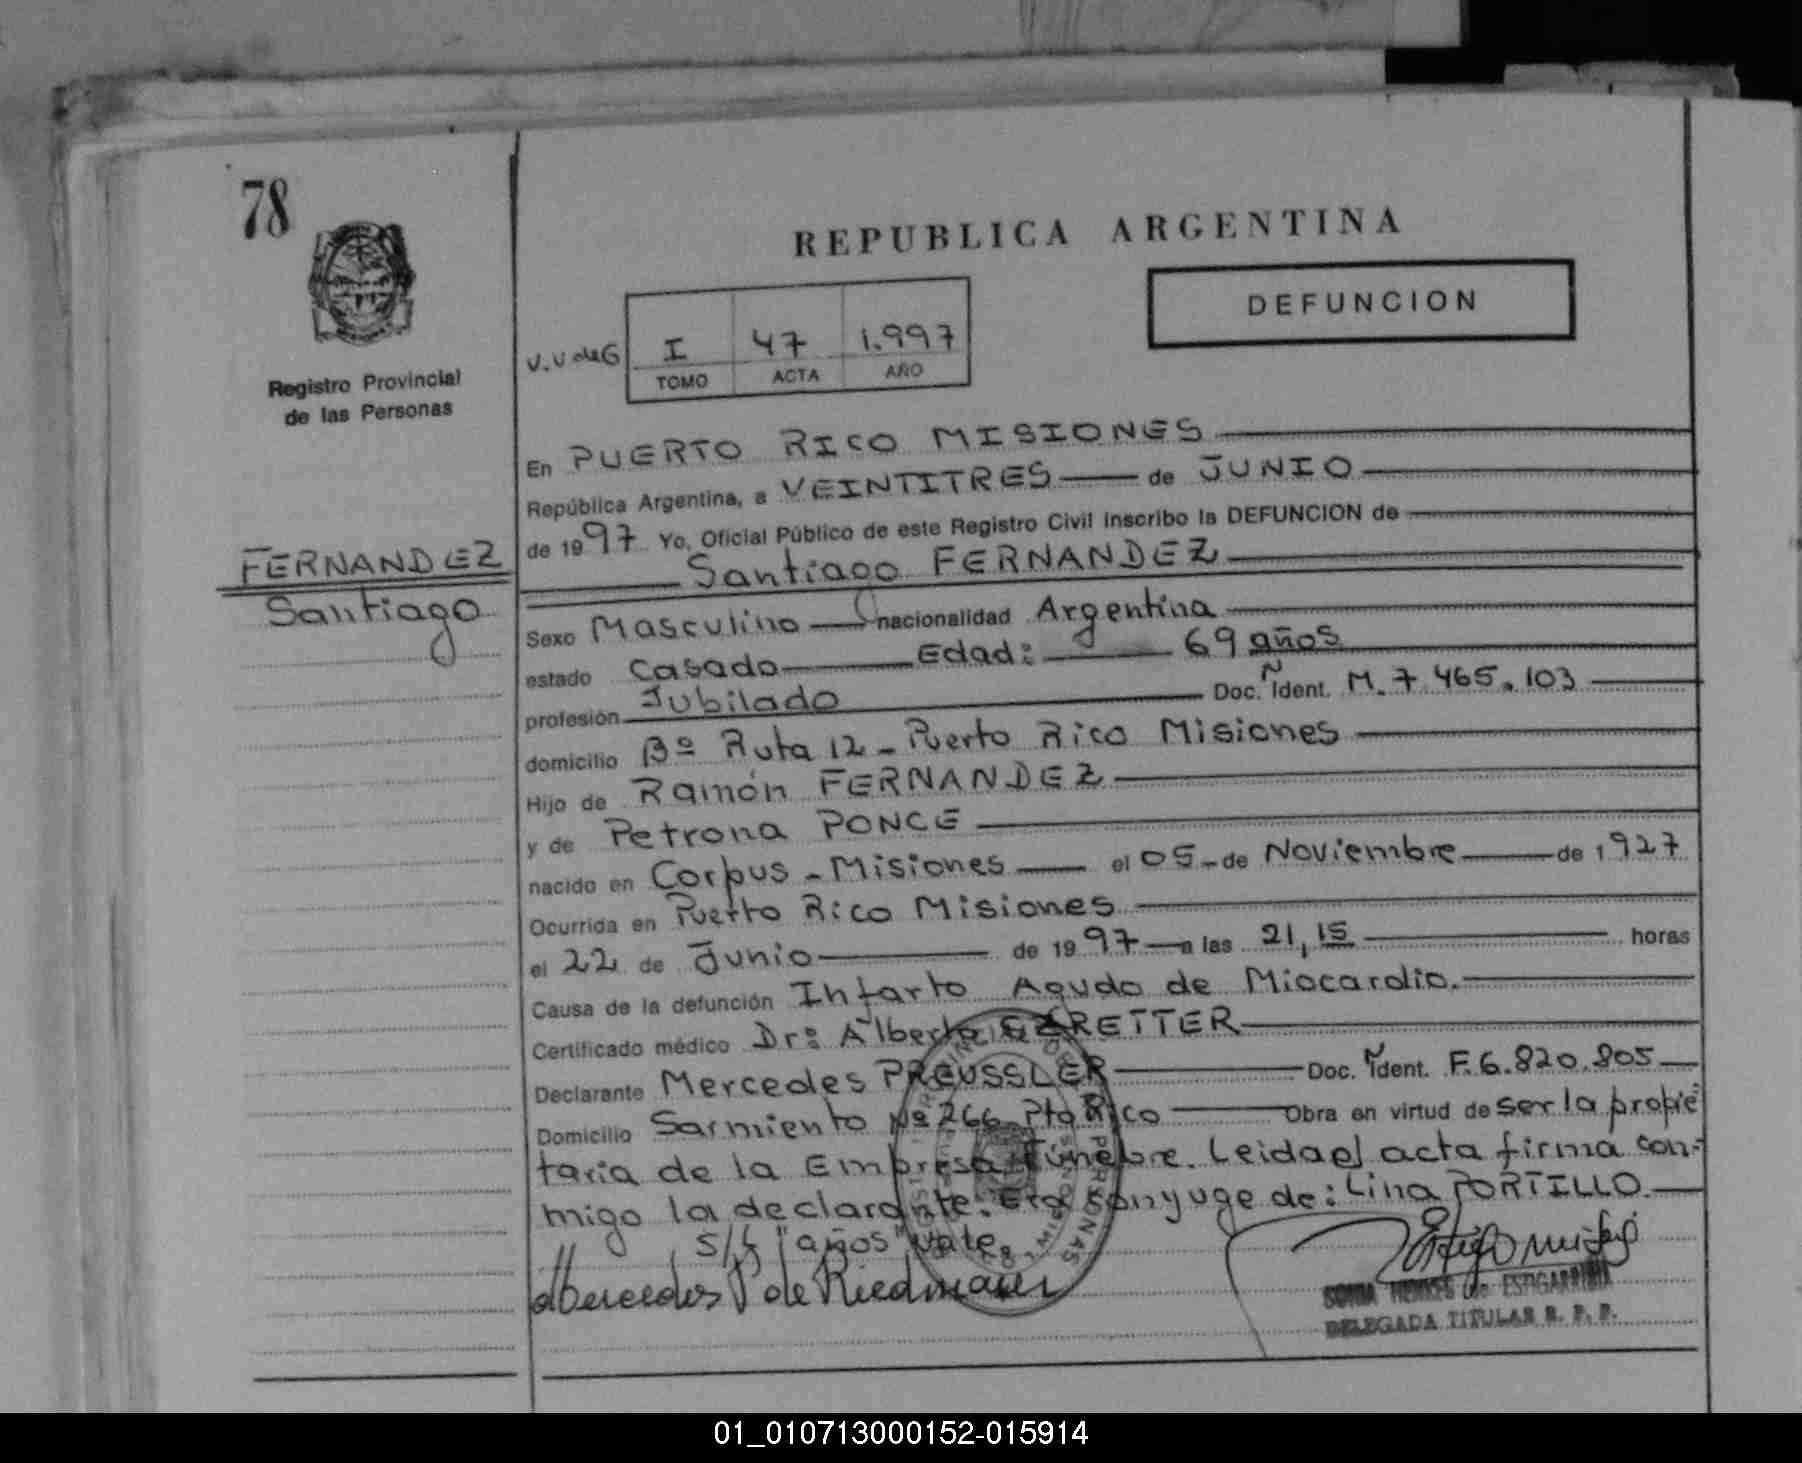 78
REPUBLICA ARGENTINA
DEFUNCION
V.V de G
I 47 1.997
TOMO ACTA AÑO
Registro Provincial
de las Personas
FERNANDEZ
Santiago
En PUERTO RICO MISIONES
República Argentina, a VEINTITRES de JUNIO
de 1997 Yo, Oficial Público de este Registro Civil inscribo la DEFUNCION de
Santiago FERNANDEZ
Sexo Masculino nacionalidad Argentina
estado Casado Edad: 69 años
profesión Jubilado Doc. Ident. M. 7.465.103
domicilio Bº Ruta 12 - Puerto Rico Misiones
Hijo de Ramón FERNANDEZ
y de Petrona PONCE
nacido en Corpus - Misiones el 05 - de Noviembre de 1927
Ocurrida en Puerto Rico Misiones
el 22 de Junio de 1997 a las 21,15 horas
Causa de la defunción Infarto Agudo de Miocardio.
Certificado médico Dr: Alberto
Declarante Mercedes PREUSSLER Doc. Ident. F.6.820.805
Domicilio Sarmiento Nº 266 Pto Rico Obra en virtud de ser la propie
taria de la Empresa Fúnebre. Leida el acta firma con-
migo la declarante. Era conyuge de: Lina PORTILLO.
S/L "años" vale.
Mercedes P de Riedmaier
SONIA de ESTIGARRIBIA
DELEGADA TITULAR R. P. P.
01_010713000152-015914